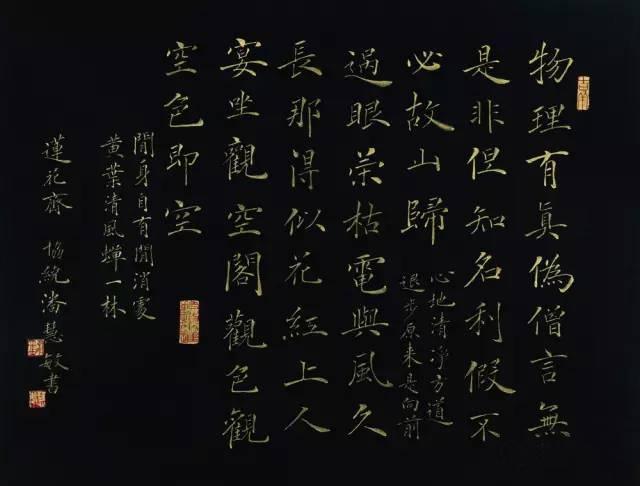 物理有真偽僧言無
是非但知名利假不
必故山歸
心地清淨方道
退步原来是向前
過眼榮枯電與風久
長那得似花紅上人
宴坐觀空閣觀色觀
空色即空
閒身自有閒消處
黄葉清風蟬一林
蓮花齋 協統潘慧敏書